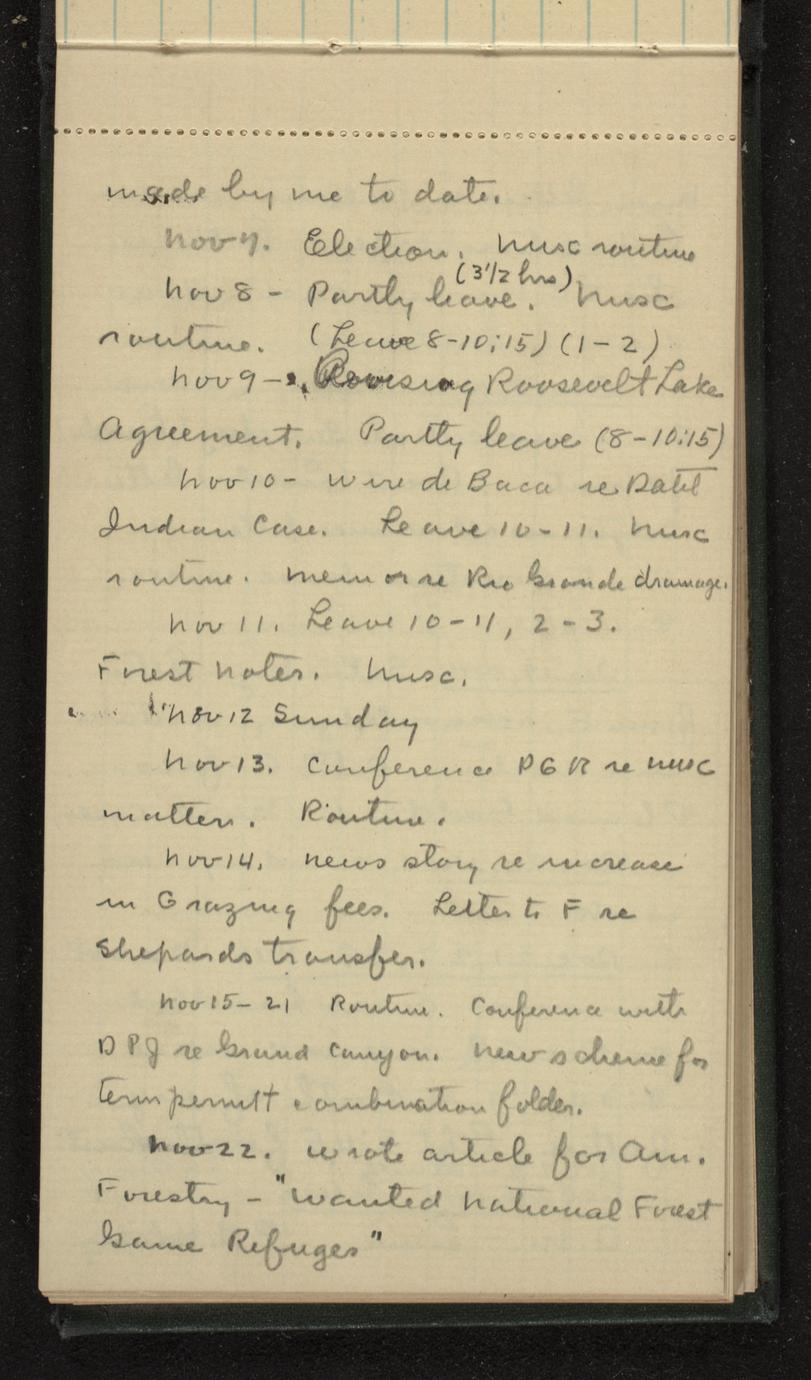 made by me to date.
Nov 7. Election. Misc routine
(3 1/2 hrs)
Nov 8 - Partly leave. Misc
routine. (Leave 8-10:15) (1-2)
Nov 9 - Revising Roosevelt Lake
Agreement. Partly leave (8-10:15)
Nov 10 - Wire de Baca re Datil
Indian Case. Leave 10-11. Misc
routine. Memor re Rio Grande drainage.
Nov 11. Leave 10-11, 2-3.
Forest Notes. Misc.
Nov 12 Sunday
Nov 13. Conference DGR re misc
matters. Routine.
Nov 14. News story re increase
in Grazing fees. Letter to F re
Shepards transfer.
Nov 15-21 Routine. Conference with
DPJ re Grand Canyon. New scheme for
term permit combination folder.
Nov 22. Wrote article for Am.
Forestry - "Wanted National Forest
Game Refuges"